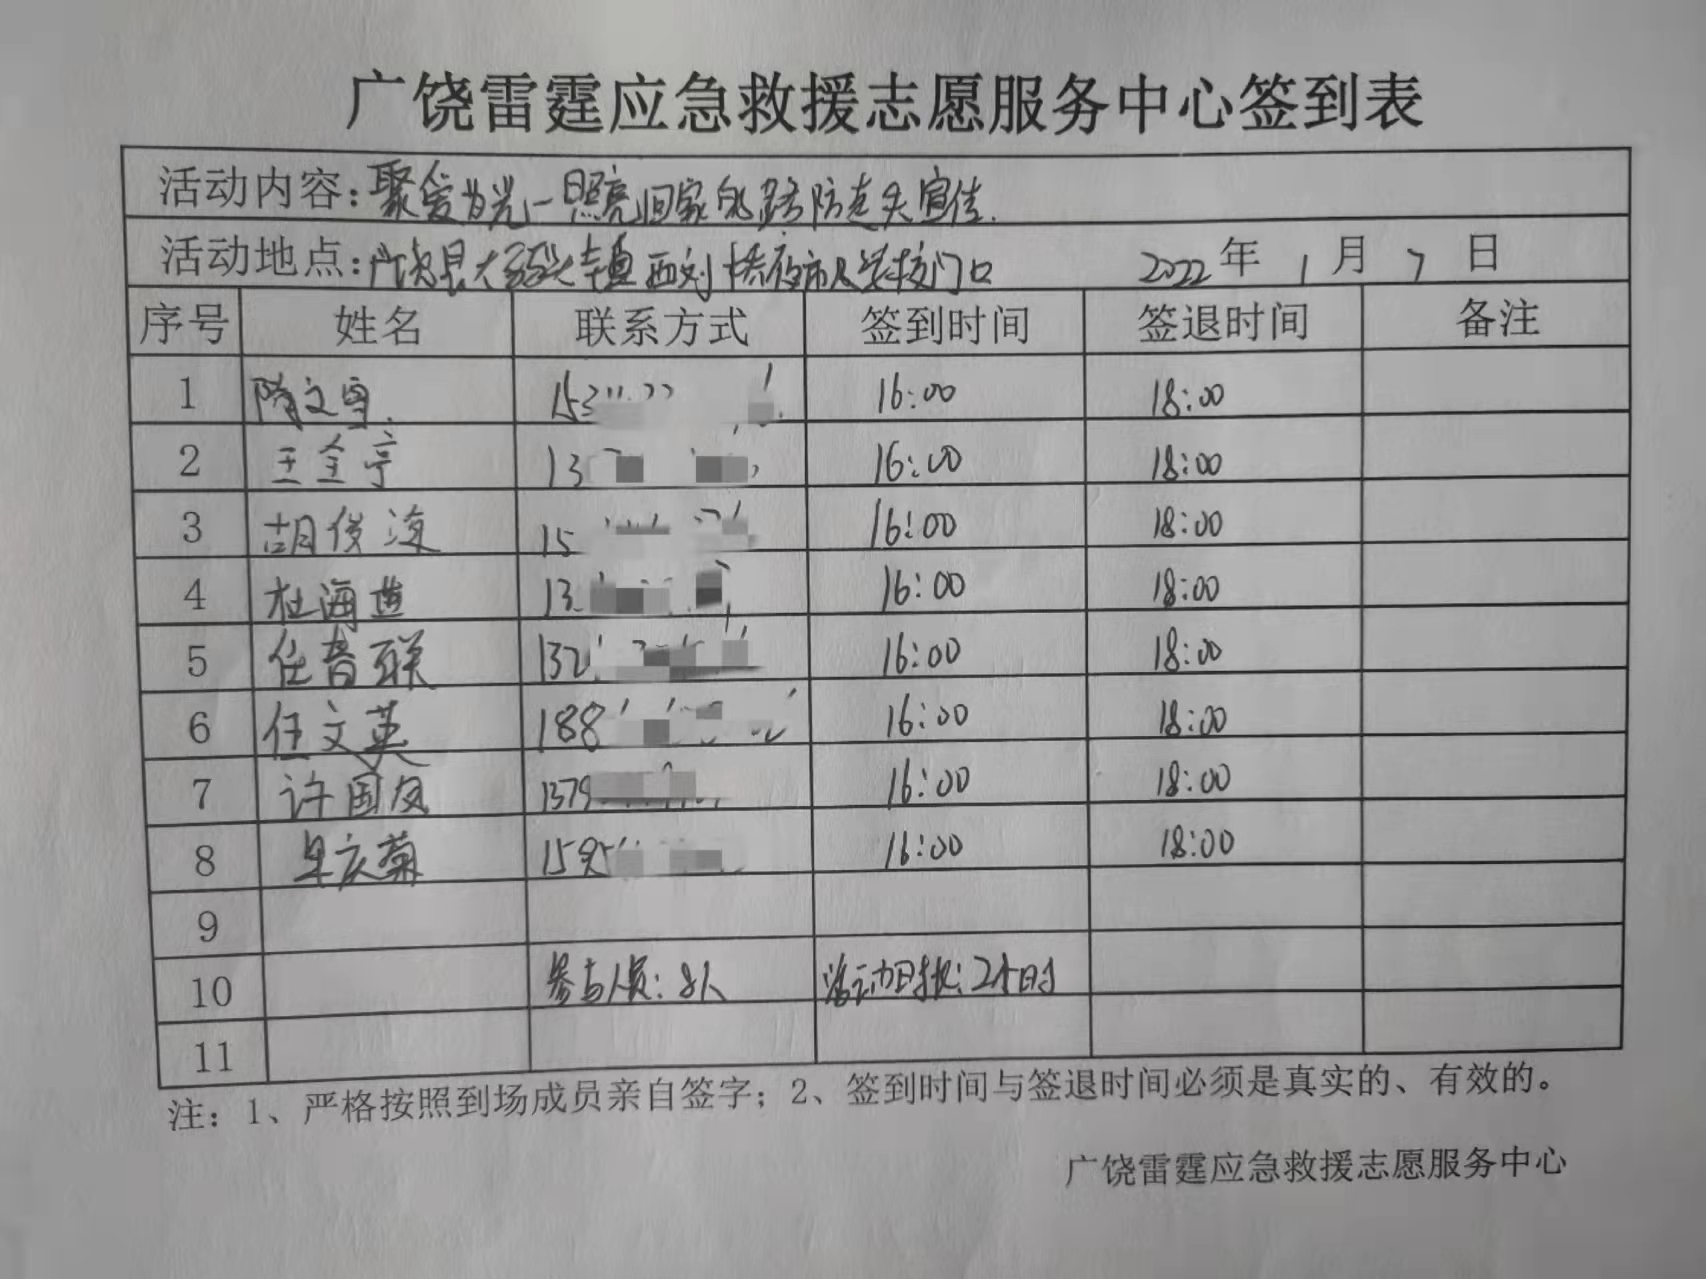 广饶雷霆应急救援志愿服务中心签到表
活动内容：聚爱为光—照亮回家的路防走失宣传.
活动地点：广饶县大码头镇西刘桥夜市及学校门口 2022年1月7日
序号 姓名 联系方式 签到时间 签退时间 备注
1 隋文 153 16:00 18:00
2 王金亭 13 16:00 18:00
3 胡俊 15 16:00 18:00
4 杜海 13 16:00 18:00
5 任 联 132 16:00 18:00
6 任文英 188 16:00 18:00
7 许国友 1379 16:00 18:00
8 庆菊 1595 16:00 18:00
9
10 参与人员：8人 活动时长：2小时
11
注：1、严格按照到场成员亲自签字；2、签到时间与签退时间必须是真实的、有效的。
广饶雷霆应急救援志愿服务中心